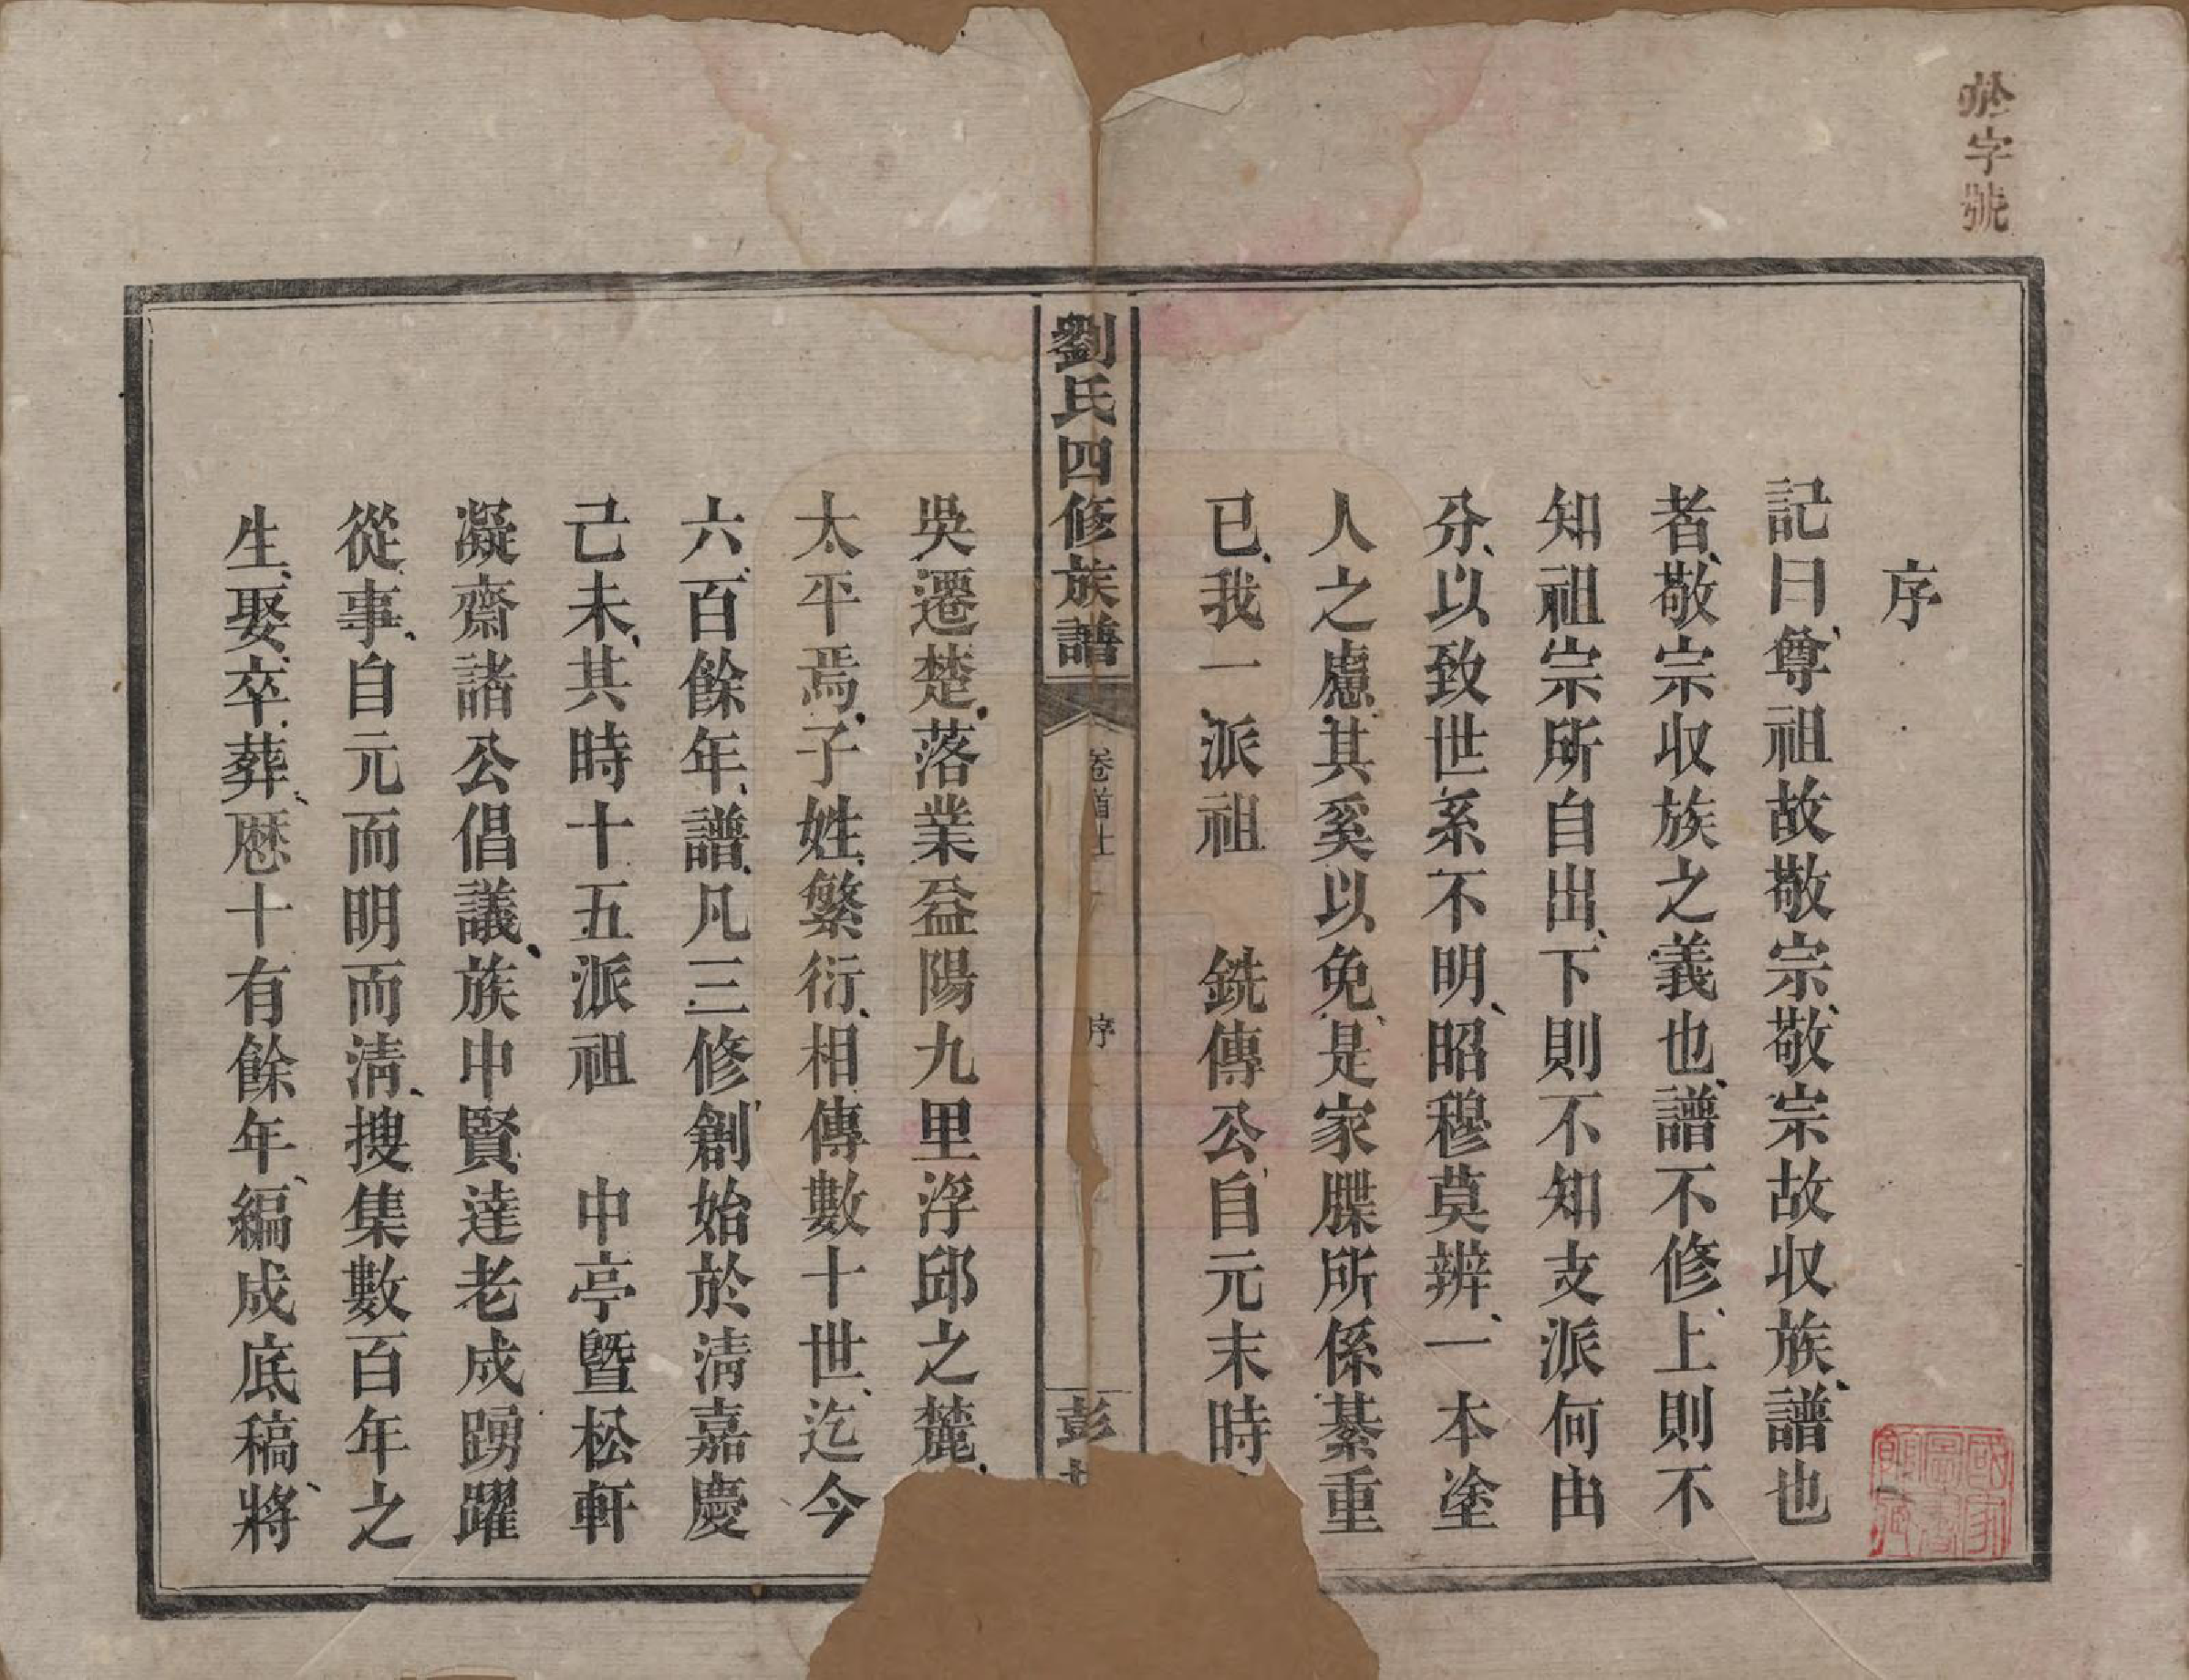 於字號
序
記曰、尊祖故敬宗、敬宗故収族、譜也
者、敬宗収族之義也、譜不修、上則不
知祖宗所自出、下則不知支派何由
分、以致世系不明、昭穆莫辨、一本塗
人之慮、其奚以免、是家牒所係綦重
已、我一派祖 銑傳公、自元末時
劉氏四修族譜 卷首上 序 彭
吳遷楚、落業益陽九里浮邱之麓、
太平焉、子姓繁衍、相傳數十世、迄今
六百餘年、譜凡三修、創始於清嘉慶
己未、其時十五派祖 中亭暨松軒
凝齋諸公倡議、族中賢達老成踴躍
從事、自元而明而清、搜集數百年之
生、娶、卒、葬、歷十有餘年、編成底稿、將
國家圖書館藏